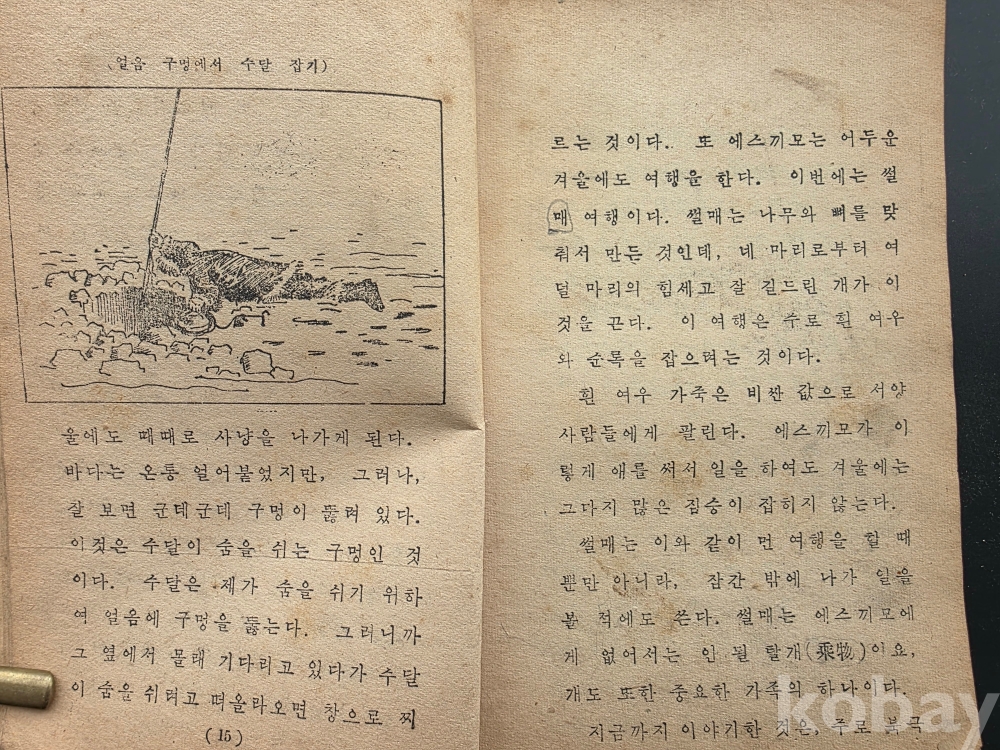 (얼음 구멍에서 수달 잡기)
울에도 때때로 사냥을 나가게 된다.
바다는 온통 얼어붙었지만, 그러나,
잘 보면 군데군데 구멍이 뚫려 있다.
이것은 수달이 숨을 쉬는 구멍인 것
이다. 수달은 제가 숨을 쉬기 위하
여 얼음에 구멍을 뚫는다. 그러니까
그 옆에서 몰래 기다리고 있다가 수달
이 숨을 쉬러고 떠올라오면 창으로 찌
(15)
르는 것이다. 또 에스끼모는 어두운
겨울에도 여행을 한다. 이번에는 썰
매 여행이다. 썰매는 나무와 뼈를 맞
춰서 만든 것인데, 네 마리로부터 여
덜 마리의 힘세고 잘 길드린 개가 이
것을 끈다. 이 여행은 주로 흰 여우
와 순록을 잡으려는 것이다.
흰 여우 가죽은 비싼 값으로 서양
사람들에게 팔린다. 에스끼모가 이
렇게 애를 써서 일을 하여도 겨울에는
그다지 많은 짐승이 잡히지 않는다.
썰매는 이와 같이 먼 여행을 할 때
뿐만 아니라, 잠간 밖에 나가 일을
볼 적에도 쓴다. 썰매는 에스끼모에
게 없어서는 안 될 탈개(乘物)이요,
개도 또한 중요한 가족의 하나이다.
지금까지 이야기한 것은, 주로 북극
kobay